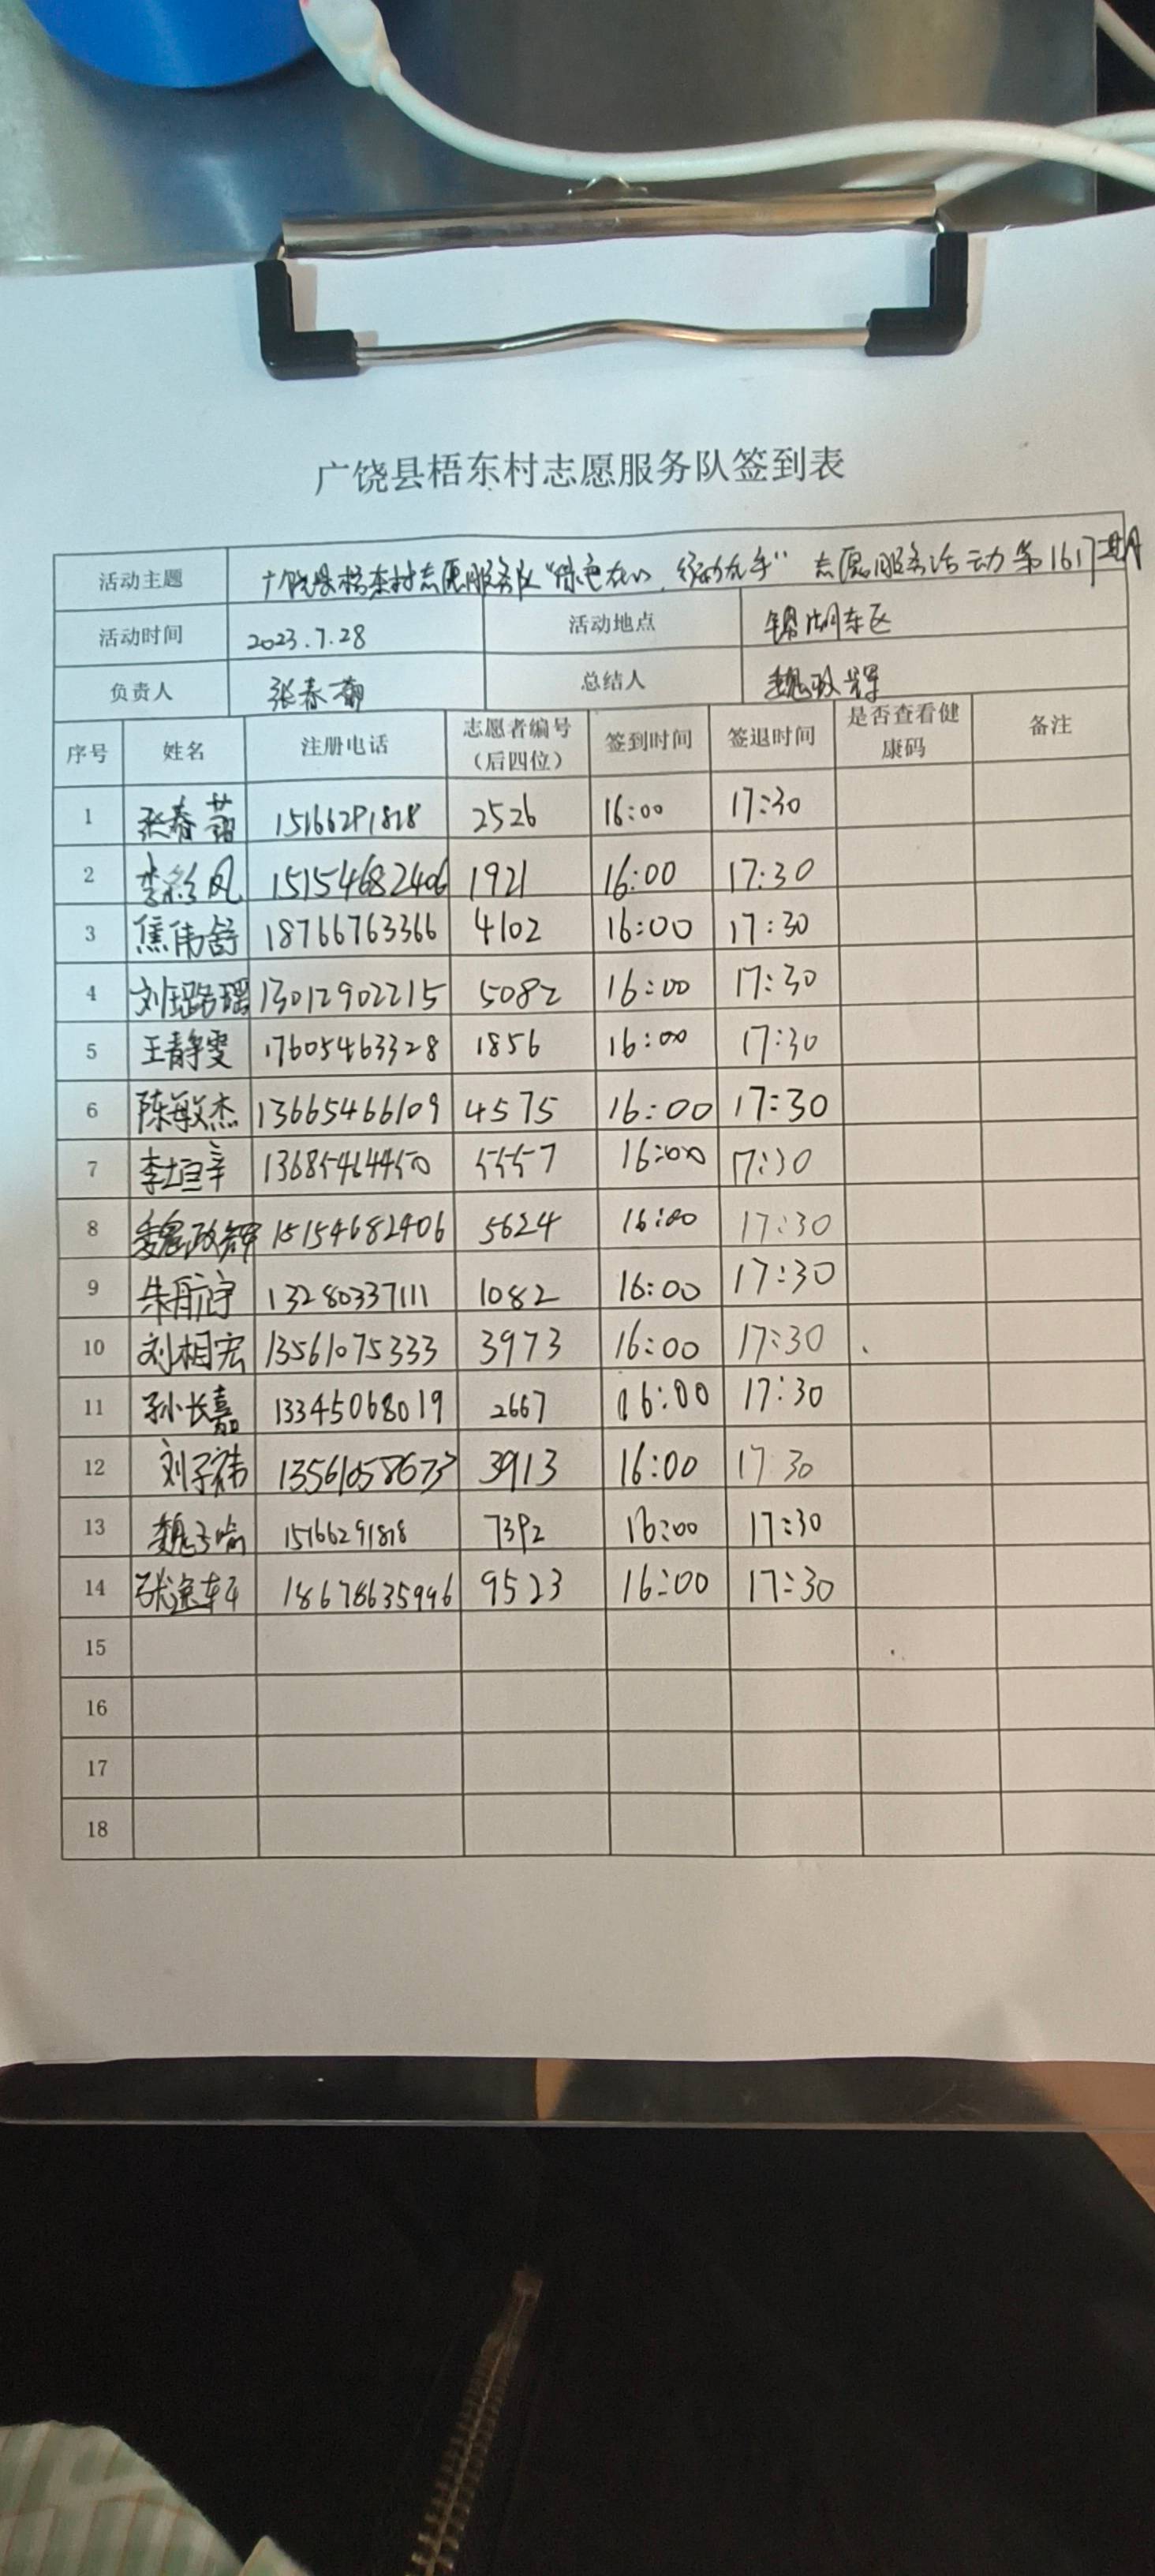 广饶县梧东村志愿服务队签到表
活动主题 广饶县梧东村志愿服务队“绿色在心，行动在手”志愿服务活动第1617期
活动时间 2023.7.28 活动地点 锦湖东区
负责人 张春 总结人 魏政辉
序号 姓名 注册电话 志愿者编号（后四位） 签到时间 签退时间 是否查看健康码 备注
1 张春 15166291818 2526 16:00 17:30
2 李彩凤 15154682406 1921 16:00 17:30
3 焦伟舒 18766763366 4102 16:00 17:30
4 刘璐瑶 13012902215 5082 16:00 17:30
5 王静雯 17605463328 1856 16:00 17:30
6 陈敏杰 13665466109 4575 16:00 17:30
7 李垣辛 13685464450 5557 16:00 17:30
8 魏政辉 15154682406 5624 16:00 17:30
9 朱航宇 13280337111 1082 16:00 17:30
10 刘相宏 13561075333 3973 16:00 17:30
11 孙长嘉 13345068019 2667 16:00 17:30
12 刘子祎 13561058673 3913 16:00 17:30
13 魏子喻 15166291818 7392 16:00 17:30
14 张 18678635996 9523 16:00 17:30
15
16
17
18